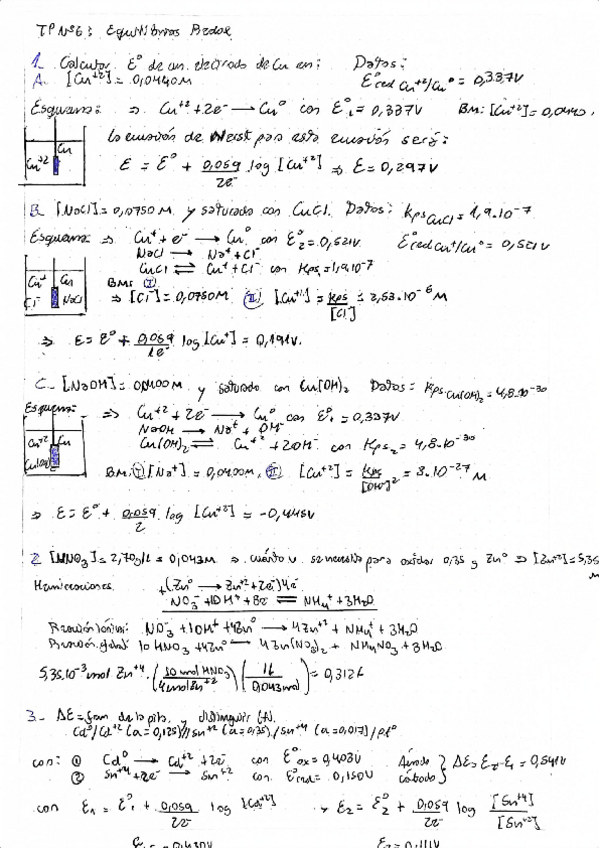 TP Nº6: Equilibrios Redox
1. Calcular E° de un electrodo de Cu en: Datos:
A. [Cu+2] = 0,0440M E°red Cu+2/Cu° = 0,337V
Esquema: ⇒ Cu+2 + 2e- → Cu° con E°1 = 0,337V BM: [Cu+2] = 0,0440
Cu+2 Cu
la ecuación de Nerst para esta ecuación será:
E = E° + 0,059/2e- log [Cu+2] ⇒ E = 0,297V
B. [NaCl] = 0,0750M y saturado con CuCl. Datos: Kps CuCl = 1,9.10-7
Esquema ⇒ Cu+ + e- → Cu° con E°2 = 0,521V E°red Cu+/Cu° = 0,521V
NaCl → Na+ + Cl-
CuCl ⇌ Cu+ + Cl- con Kps1 = 1,9.10-7
Cu+ Cu
Cl- NaCl
BM: I ⇒ [Cl-] = 0,0750M II [Cu+] = Kps/[Cl-] = 2,53.10-6 M
⇒ E = E° + 0,059/1e- log [Cu+] = 0,191V.
C. [NaOH] = 0,0400M y saturado con Cu(OH)2 Datos = Kps Cu(OH)2 = 4,8.10-30
Esquema ⇒ Cu+2 + 2e- → Cu° con E°1 = 0,337V
NaOH → Na+ + OH-
Cu(OH)2 ⇌ Cu+2 + 2OH- con Kps2 = 4,8.10-30
Cu+2 Cu
BM: I [Na+] = 0,0400M, II [Cu+2] = Kps/[OH-]2 = 3.10-27 M
⇒ E = E° + 0,059/2 log [Cu+2] = -0,445V
2. [HNO3] = 2,70g/L = 0,043M ⇒ cuánto v se necesita para oxidar 0,35 g Zn° ⇒ [Zn+2] = 5,35
M
Hemireacciones +(Zn° → Zn+2 + 2e-)4e-
NO3- + 10H+ + 8e- ⇌ NH4+ + 3H2O
Reacción iónica: NO3- + 10H+ + 4Zn° → 4Zn+2 + NH4+ + 3H2O
Reacción global 10 HNO3 + 4Zn° → 4Zn(NO3)2 + NH4NO3 + 3H2O
5,35.10-3 mol Zn+4 . (10 mol HNO3/4 mol Zn+2) (1L/0,043mol) = 0,312L
3. ΔE = fem de la pila y distinguir (+).
Cd°/Cd+2 (a=0,125)//Sn+2 (a=0,35)/Sn+4 (a=0,017)/Pt°
con: 1 Cd° → Cd+2 + 2e- con E°ox = 0,403V Ánodo
2 Sn+4 + 2e- → Sn+2 con E°red = 0,150V cátodo ΔE = E2 - E1 = 0,541V
con E1 = E°1 + 0,059/2e- log [Cd+2] y E2 = E°2 + 0,059/2e- log [Sn+4]/[Sn+2]
E2 = 0,111V